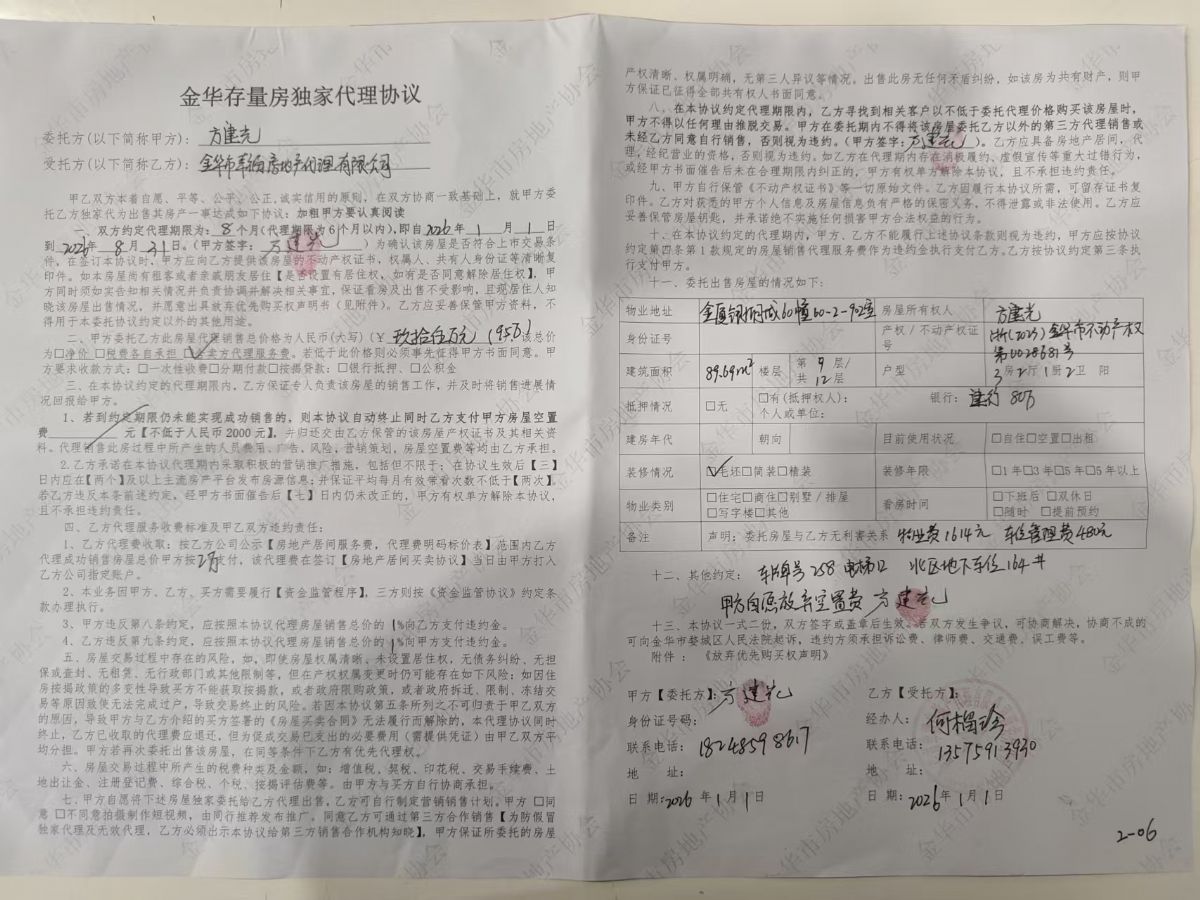 金华存量房独家代理协议
委托方(以下简称甲方): 方建光
受托方(以下简称乙方): 金华市 房地产代理有限公司
甲乙双方本着自愿、平等、公平、公正,诚实信用的原则,在双方协商一致基础上,就甲方委
托乙方独家代为出售其房产一事达成如下协议:加粗甲方要认真阅读
一、双方约定代理期限为:8个月(代理期限为6个月以内),即自2026年 1 月 1 日
到2026年 8 月 31 日。(甲方签字: 方建光 )为确认该房屋是否符合上市交易条
件,在签订本协议时,甲方应向乙方提供该房屋的不动产权证书,权属人、共有人身份证等清晰复
印件。如本房屋尚有租客或者亲戚朋友居住【是否设置有居住权,如有是否同意解除居住权】,甲
方同时须如实告知相关情况并负责协调并解决相关事宜,保证看房及出售不受影响,且现居住人知
晓该房屋出售情况,并愿意出具放弃优先购买权声明书(见附件)。乙方应妥善保管甲方资料,不
得用于本委托协议约定以外的其他用途。
二、甲方委托乙方此房屋代理销售总价格为人民币(大写)(¥ 玖拾伍万元(95万)该总价
为□净价 □税费各自承担 □含卖方代理服务费。若低于此价格则必须事先征得甲方书面同意。甲
方要求收款方式:□一次性收费□分期付款□按揭贷款:□银行抵押、□公积金
三、在本协议约定的代理期限内,乙方保证专人负责该房屋的销售工作,并及时将销售进展情
况回报给甲方。
1、若到约定期限仍未能实现成功销售的,则本协议自动终止同时乙方支付甲方房屋空置
费 元【不低于人民币2000元】,并归还交由乙方保管的该房屋产权证书及其相关资
料。代理销售此房过程中所产生的人员费用、广告、风险,营销策划,房屋空置费等均由乙方承担。
2.乙方承诺在本协议代理期内采取积极的营销推广措施,包括但不限于:在协议生效后【三】
日内应在【两个】及以上主流房产平台发布房源信息;并保证平均每月有效带看次数不低于【两次】。
若乙方违反本条前述约定,经甲方书面催告后【七】日内仍未改正的,甲方有权单方解除本协议,
且不承担违约责任。
四、乙方代理服务收费标准及甲乙双方违约责任:
1、乙方代理费收取:按乙方公司公示【房地产居间服务费,代理费明码标价表】范围内乙方
代理成功销售房屋总价甲方按2万支付,该代理费在签订【房地产居间买卖协议】当日由甲方打入
乙方公司指定账户。
2、本业务因甲方、乙方、买方需要履行【资金监管程序】,三方则按《资金监管协议》约定条
款办理执行。
3、甲方违反第八条约定,应按照本协议代理房屋销售总价的 1%向乙方支付违约金。
4、乙方违反第九条约定,应按照本协议代理房屋销售总价的 1%向甲方支付违约金。
五、房屋交易过程中存在的风险,如,即使房屋权属清晰、未设置居住权,无债务纠纷、无担
保或查封、无租赁、无行政部门或其他限制等,但在产权权属变更时仍可能存在如下风险:如因住
房按揭政策的多变性导致买方不能获取按揭款,或者政府限购政策,或者政府拆迁、限制、冻结交
易等原因致使无法完成过户,导致交易终止的风险。若因本协议第五条所列之不可归责于甲乙双方
的原因,导致甲方与乙方介绍的买方签署的《房屋买卖合同》无法履行而解除的,本代理协议同时
终止,乙方已收取的代理费应退还,但为促成交易已支出的必要费用(需提供凭证)由甲乙双方平
均分担。甲方若再次委托出售该房屋,在同等条件下乙方有优先代理权。
六、房屋交易过程中所产生的税费种类及金额,如:增值税、契税、印花税、交易手续费、土
地出让金、注册登记费、综合税、个税、按揭评估费等。由甲方与买方自行协商承担。
七、甲方自愿将下述房屋独家委托给乙方代理出售,乙方可自行制定营销销售计划。甲方 □同
意 □不同意拍摄制作短视频,由同行推荐发布推广。同意乙方可通过第三方合作销售【为防假冒
独家代理及无效代理,乙方必须出示本协议给第三方销售合作机构知晓】,甲方保证所委托的房屋
产权清晰、权属明确,无第三人异议等情况。出售此房无任何矛盾纠纷,如该房为共有财产,则甲
方保证已征得全部共有权人书面同意。
八、在本协议约定代理期限内,乙方寻找到相关客户以不低于委托代理价格购买该房屋时,
甲方不得以任何理由推脱交易。甲方在委托期内不得将该房屋委托乙方以外的第三方代理销售或
未经乙方同意自行销售,否则视为违约。(甲方签字:方建光 )。乙方应具备房地产居间,代
理,经纪营业的资格,否则视为违约。如乙方在代理期内存在消极履约、虚假宣传等重大过错行为,
或经甲方书面催告后未在合理期限内纠正的,甲方有权单方解除本协议,且不承担违约责任。
九、甲方自行保管《不动产权证书》等一切原始文件。乙方因履行本协议所需,可留存证书复
印件。乙方对获悉的甲方个人信息及房屋信息负有严格的保密义务,不得泄露或非法使用。乙方应
妥善保管房屋钥匙,并承诺绝不实施任何损害甲方合法权益的行为。
十、在本协议约定的代理期内,甲方、乙方不能履行上述协议条款则视为违约,甲方应按协议
约定第四条第1款规定的房屋销售代理服务费作为违约金执行支付乙方。乙方按协议约定第三条执
行支付甲方。
十一、委托出售房屋的情况如下:
物业地址 金厦银湖城60幢60-2-902室 房屋所有权人 方建光
身份证号 产权/不动产权证号 浙(2025)金华市不动产权第0028681号
建筑面积 89.69m² 楼层 第 9 层/共 12 层 户型 3房2厅1厨2卫 阳
抵押情况 □无 □有(抵押权人): 个人或单位: 银行: 建行 80万
建房年代 朝向 目前使用状况 □自住□空置□出租
装修情况 ☑毛坯□简装□精装 装修年限 □1年□3年□5年□5年以上
物业类别 □住宅□商住□别墅/排屋 □写字楼□其他 看房时间 □下班后 □双休日 □随时 □提前预约
备注 声明:委托房屋与乙方无利害关系 物业费1614元 车位管理费480元
十二、其他约定: 车牌号258 电梯口 北区地下车位164#
甲方自愿放弃空置费 方建光
十三、本协议一式二份,双方签字或盖章后生效。若双方发生争议,可协商解决,协商不成的
可向金华市婺城区人民法院起诉,违约方须承担诉讼费、律师费、交通费、误工费等。
附件:《放弃优先购买权声明》
甲方【委托方】: 方建光
身份证号码:
联系电话: 18248598617
地 址:
日 期:2026 年 1 月 1 日
乙方【受托方】:
经办人: 何榴珍
联系电话: 13575913930
地 址:
日 期:2026 年 1 月 1 日
2-06